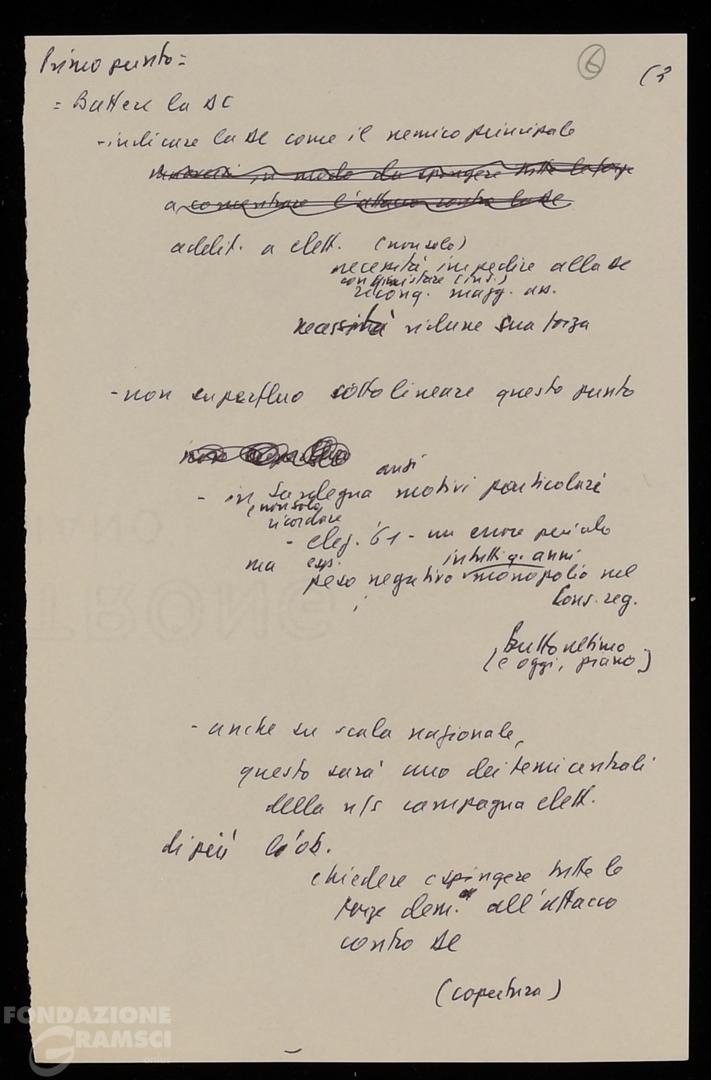 6
(3
Primo punto =
= Battere la DC
- indicare la DC come il nemico principale
in modo da spingere tutte le forze
a concentrare l'attacco contro la DC
addit. a elett. (non solo)
necessità impedire alla DC
conquistare (ins.)
riconq. magg. ass.
necessità ridurre sua forza
- non superfluo sottolineare questo punto
anzi
- in Sardegna motivi particolari
(non solo
ricordare
- elez. '61 - un enorme pericolo
ma esp. in tutti q. anni
peso negativo monopolio nel
Cons. reg.
(e oggi, piano)
- anche su scala nazionale,
questo sarà uno dei temi centrali
della n/s campagna elett.
di più l'ob.
chiedere e spingere tutte le
forze dem. all'attacco
contro DC
(copertura)
FONDAZIONE
GRAMSCI
onlus